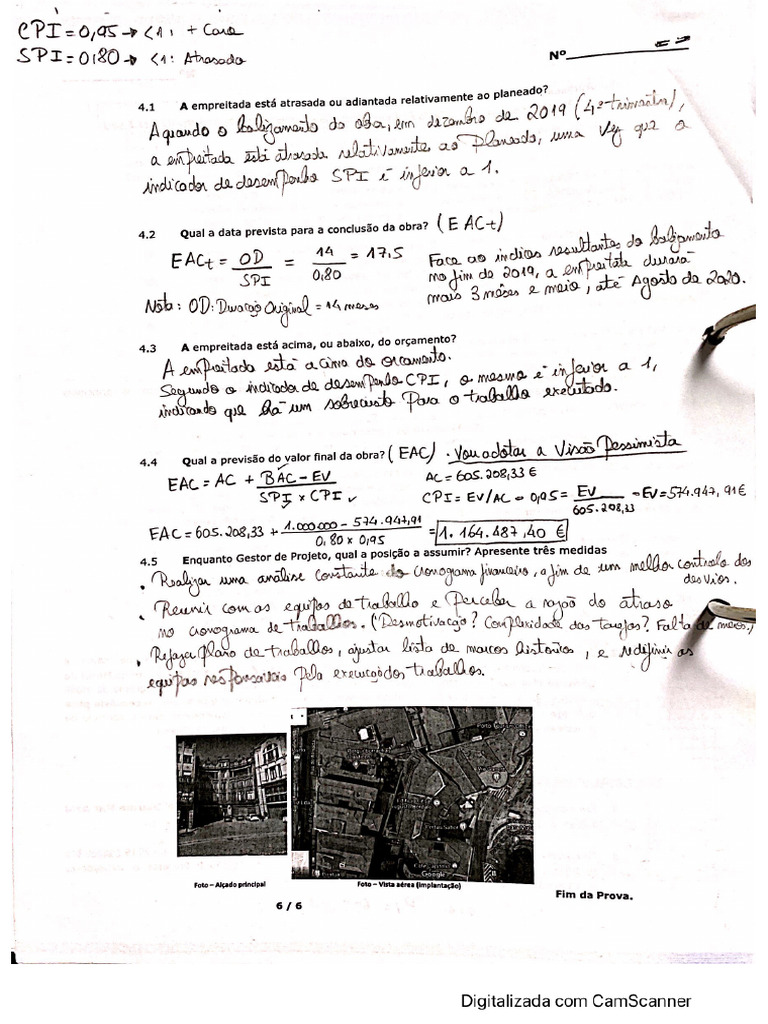 CPI = 0,95 → <1: + Caro
SPI = 0,80 → <1: Atrasado
Nº
4.1 A empreitada está atrasada ou adiantada relativamente ao planeado?
Aquando o balizamento da obra, em dezembro de 2019 (4º trimestre),
a empreitada está atrasada relativamente ao Planeado, uma vez que o
indicador de desempenho SPI é inferior a 1.
4.2 Qual a data prevista para a conclusão da obra? (EACt)
EACt = OD/SPI = 14/0,80 = 17,5
Face ao índices resultantes do balizamento
no fim de 2019, a empreitada durará
mais 3 mêses e meio, até Agosto de 2020.
Nota: OD: Duração Original = 14 meses
4.3 A empreitada está acima, ou abaixo, do orçamento?
A empreitada está acima do orçamento.
Segundo o indicador de desempenho CPI, o mesmo é inferior a 1,
indicando que há um sobrecusto Para o trabalho executado.
4.4 Qual a previsão do valor final da obra? (EAC) . Vou adotar a Visão Pessimista
EAC = AC + BAC - EV / SPI x CPI
AC = 605.208,33 €
CPI = EV/AC → 0,95 = EV / 605.208,33 → EV = 574.947,91€
EAC = 605.208,33 + 1.000.000 - 574.947,91 / 0,80 x 0,95 = 1.164.487,40 €
4.5 Enquanto Gestor de Projeto, qual a posição a assumir? Apresente três medidas
. Realizar uma análise constante do cronograma financeiro, a fim de um melhor controlo dos
desvios.
. Reunir com as equipas de trabalho e perceber a razão do atraso
no cronograma de trabalhos. (Desmotivação? Complexidade das tarefas? Falta de meios,)
. Refazer plano de trabalhos, ajustar lista de marcos históricos, e redefinir as
equipas responsáveis pela execução dos trabalhos.
Google
Foto – Alçado principal
Foto – Vista aérea (implantação)
Fim da Prova.
6 / 6
Digitalizada com CamScanner